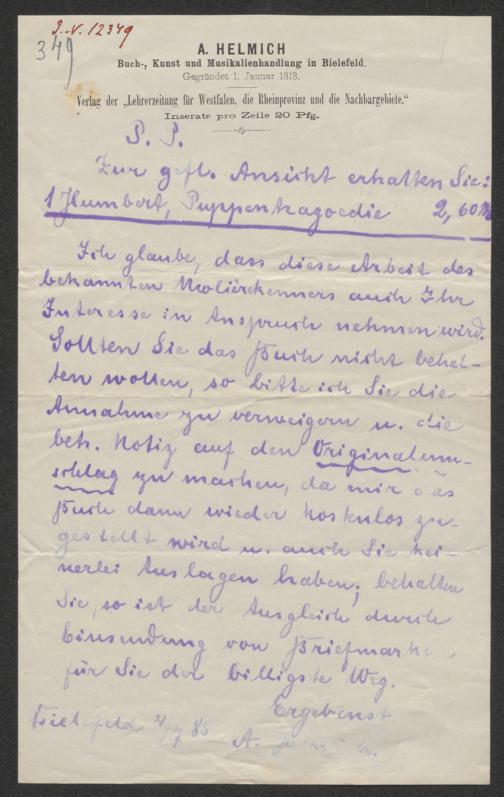 I.-V. 12349
349
A. HELMICH
Buch-, Kunst und Musikalienhandlung in Bielefeld.
Gegründet 1. Januar 1818.
Verlag der „Lehrerzeitung für Westfalen, die Rheinprovinz und die Nachbargebiete."
Inserate pro Zeile 20 Pfg.
P. P.
Zur gefl. Ansicht erhalten Sie:
1 Humbert, Puppentragoedie 2,60
Ich glaube, dass diese Arbeit des
bekannten Molièrekenners auch Ihr
Interesse in Anspruch nehmen wird.
Sollten Sie das Buch nicht behal-
ten wollen, so bitte ich Sie die
Annahme zu verweigern u. die
betr. Notiz auf den Originalum-
schlag zu machen, da mir das
Buch dann wieder kostenlos zu-
gestellt wird u. auch Sie kei-
nerlei Auslagen haben; behalten
Sie, so ist der Ausgleich durch
Einsendung von Briefmarke
für Sie der billigste Weg.
Ergebenst
Bielefeld 85
A.